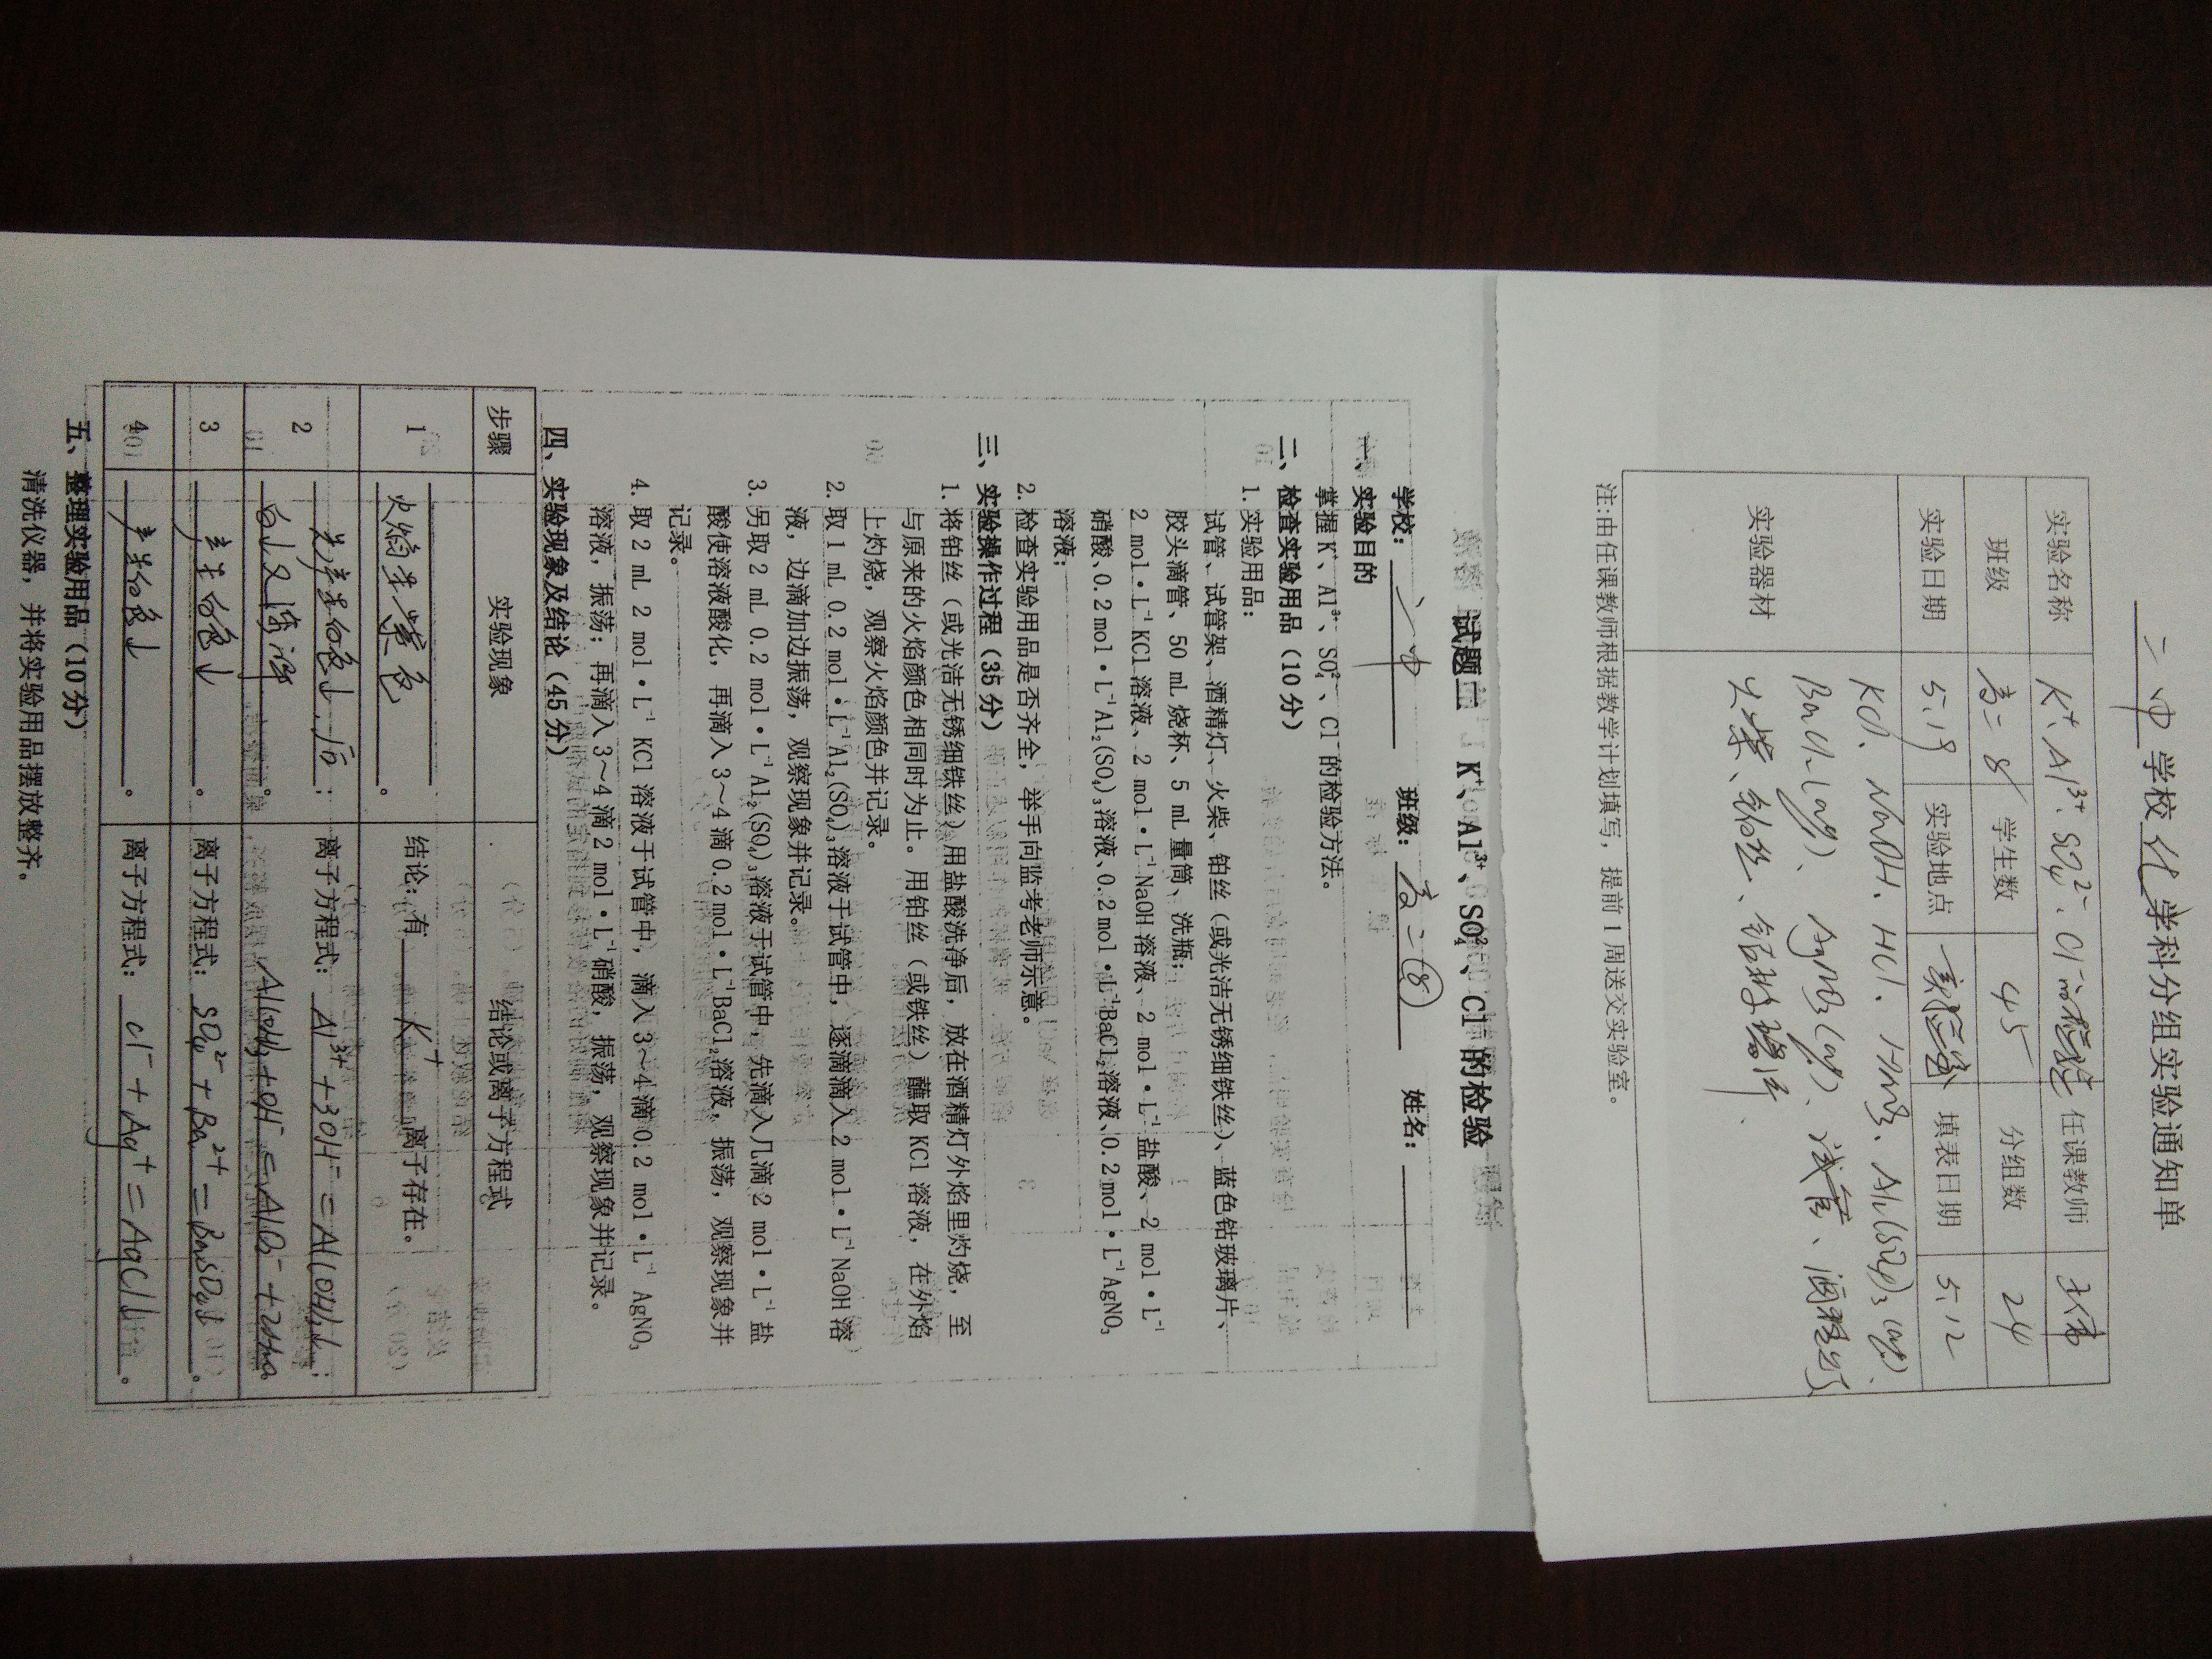 二中学校化学学科分组实验通知单
实验名称 K⁺、Al³⁺、SO₄²⁻、Cl⁻的检验 任课教师
班级 高二8 学生数 45 分组数 24
实验日期 5.19 实验地点 实验室 填表日期 5.12
实验器材
KCl、NaOH、HCl、HNO₃、Al₂(SO₄)₃(aq)
BaCl₂(aq)、AgNO₃(aq)、试管、酒精灯
火柴、铂丝、钴玻璃片、
注:由任课教师根据教学计划填写，提前1周送交实验室。
试题二 K⁺、Al³⁺、SO₄²⁻、Cl⁻的检验
学校：二中 班级：高二(8) 姓名：
一、实验目的
掌握K⁺、Al³⁺、SO₄²⁻、Cl⁻的检验方法。
二、检查实验用品（10分）
1. 实验用品：
试管、试管架、酒精灯、火柴、铂丝（或光洁无锈细铁丝）、蓝色钴玻璃片、
胶头滴管、50 mL烧杯、5 mL量筒、洗瓶；
2 mol·L⁻¹KCl溶液、2 mol·L⁻¹NaOH溶液、2 mol·L⁻¹盐酸、2 mol·L⁻¹
硝酸、0.2 mol·L⁻¹Al₂(SO₄)₃溶液、0.2 mol·L⁻¹BaCl₂溶液、0.2 mol·L⁻¹AgNO₃
溶液；
2. 检查实验用品是否齐全，举手向监考老师示意。
三、实验操作过程（35分）
1. 将铂丝（或光洁无锈细铁丝）用盐酸洗净后，放在酒精灯外焰里灼烧，至
与原来的火焰颜色相同时为止。用铂丝（或铁丝）蘸取KCl溶液，在外焰
上灼烧，观察火焰颜色并记录。
2. 取1 mL 0.2 mol·L⁻¹Al₂(SO₄)₃溶液于试管中，逐滴滴入2 mol·L⁻¹NaOH溶
液，边滴加边振荡，观察现象并记录。
3. 另取2 mL 0.2 mol·L⁻¹Al₂(SO₄)₃溶液于试管中，先滴入几滴2 mol·L⁻¹盐
酸使溶液酸化，再滴入3～4滴0.2 mol·L⁻¹BaCl₂溶液，振荡，观察现象并
记录。
4. 取2 mL 2 mol·L⁻¹ KCl溶液于试管中，滴入3～4滴0.2 mol·L⁻¹ AgNO₃
溶液，振荡；再滴入3～4滴2 mol·L⁻¹硝酸，振荡，观察现象并记录。
四、实验现象及结论（45分）
步骤 实验现象 结论或离子方程式
1 火焰呈紫色。 结论：有K⁺离子存在。
2 先产生白色↓，后； 离子方程式：Al³⁺+3OH⁻=Al(OH)₃↓；
白↓又溶解。 Al(OH)₃+OH⁻=AlO₂⁻+2H₂O
3 产生白色↓。 离子方程式：SO₄²⁻+Ba²⁺=BaSO₄↓。
4 产生白色↓。 离子方程式：Cl⁻+Ag⁺=AgCl↓。
五、整理实验用品（10分）
清洗仪器，并将实验用品摆放整齐。